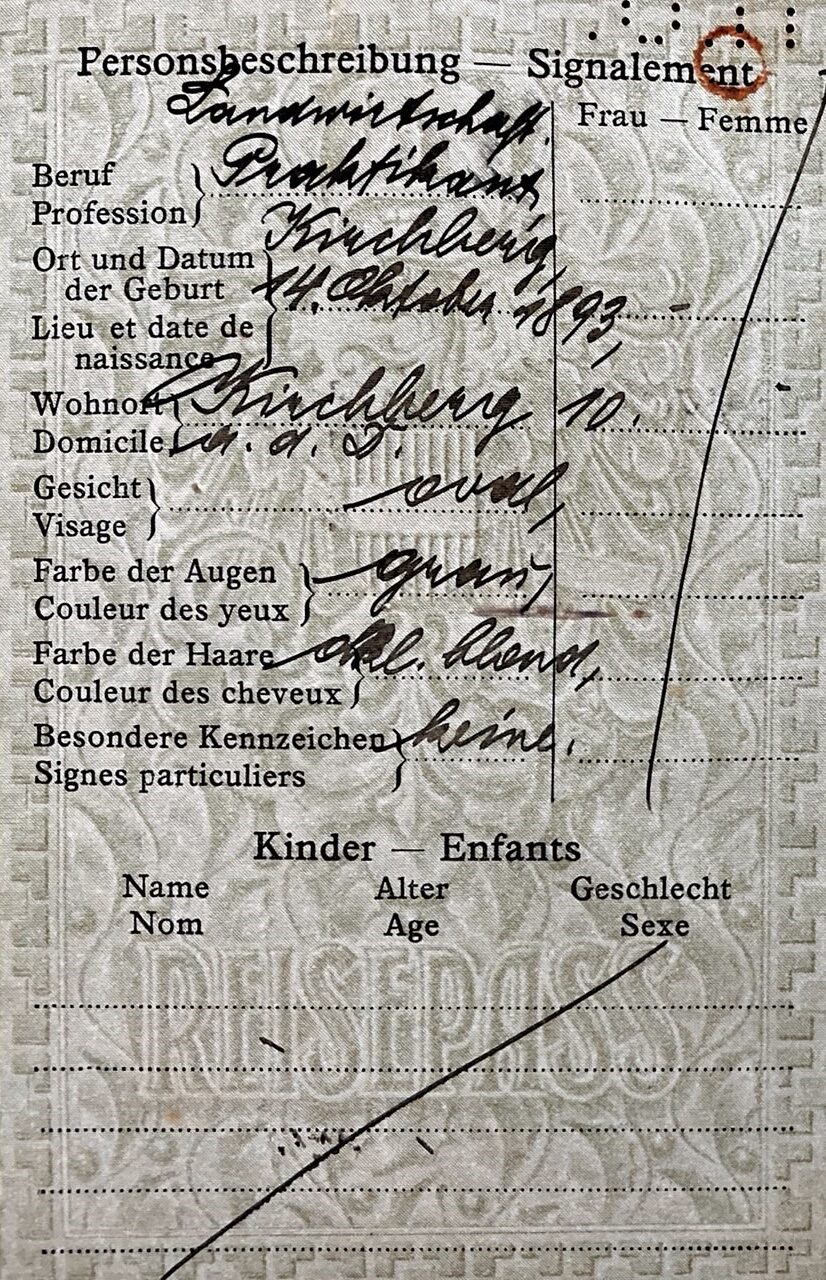 Personsbeschreibung — Signalement
Landwirtschaft.
Frau — Femme
Beruf
Praktikant
Profession
Kirchberg,
Ort und Datum
der Geburt
14. Oktober 1893,
Lieu et date de
naissance
Wohnort
Kirchberg 10.
Domicile
a. d. D.
Gesicht
oval,
Visage
Farbe der Augen
grau,
Couleur des yeux
Farbe der Haare
dkl. blond,
Couleur des cheveux
Besondere Kennzeichen
keine.
Signes particuliers
Kinder — Enfants
Name Alter Geschlecht
Nom Age Sexe
REISEPASS